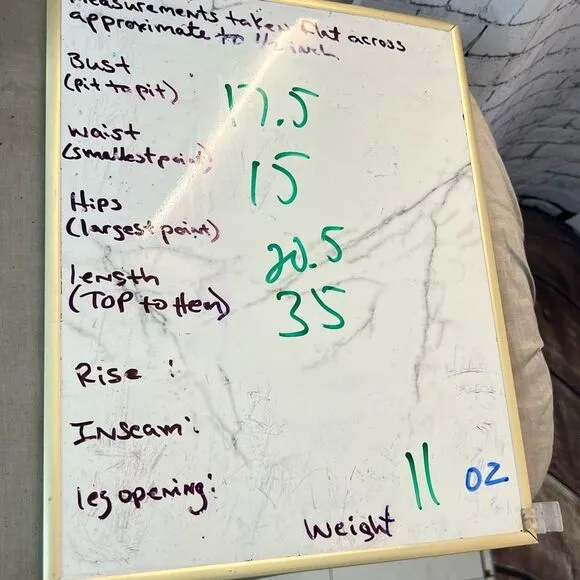 Measurements taken flat across
approximate to 1/2 inch
Bust
(pit to pit) 17.5
waist
(smallest point) 15
Hips
(largest point) 20.5
length
(TOP to Hem) 35
Rise :
Inseam:
leg opening:
Weight 11 oz